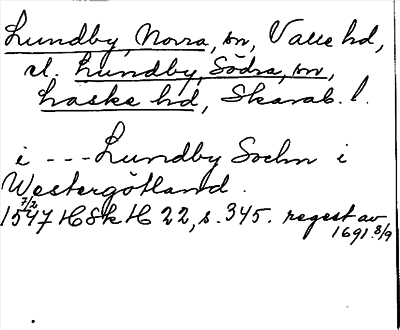 Lundby, Norra, sn, Valle hd,
el. Lundby, Södra, sn,
Laske hd, Skarab. l.
i --- Lundby Sochn i
Westergötland.
1547 7/2 HSkH 22, s. 345. regest av
1691 8/9